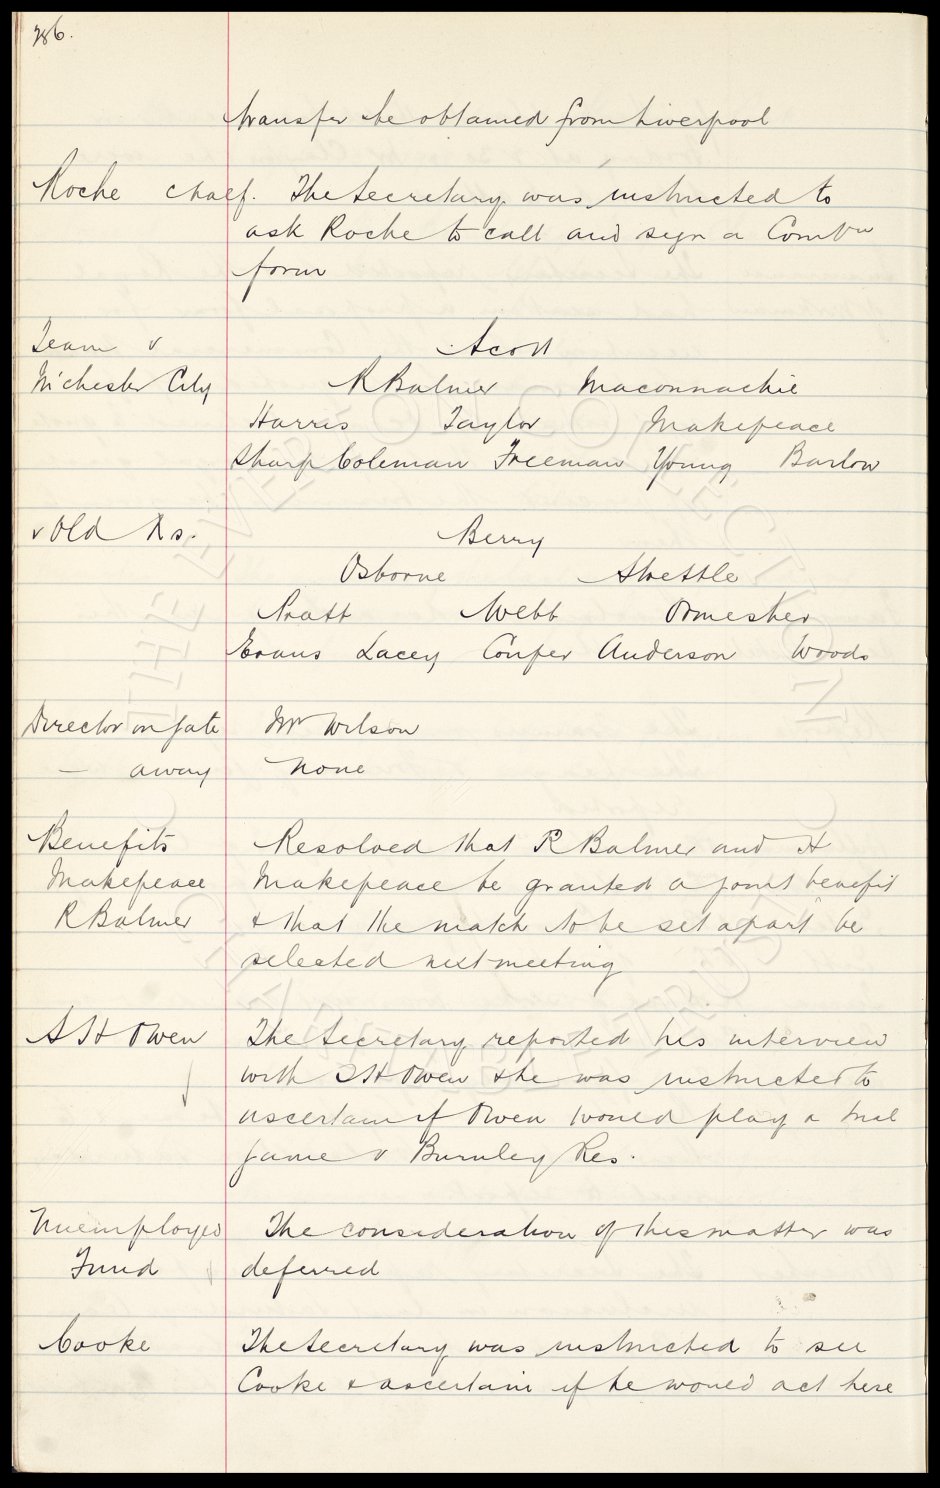 286.
transfer be obtained from Liverpool
Roche c half. The Secretary was instructed to
ask Roche to call and sign a Combn
form
Team v Scott
M'chester City R Balmer Maconnachie
Harris Taylor Makepeace
Sharp Coleman Freeman Young Barlow
v Old Xs. Berry
Osborne Strettle
Pratt Webb Ormesher
Evans Lacey Couper Anderson Woods
Director on gate Mr Wilson
— away None
Benefits Resolved that R Balmer and H
Makepeace Makepeace be granted a joint benefit
R Balmer & that the match to be set apart be
selected next meeting
S H Owen The Secretary reported his interview
with S H Owen & he was instructed to
ascertain if Owen would play a trial
game v Burnley Res.
Unemployed The consideration of this matter was
Fund deferred
Cooke The Secretary was instructed to see
Cooke & ascertain if he would act here
THE EVERTON COLLECTION
CHARITABLE TRUST